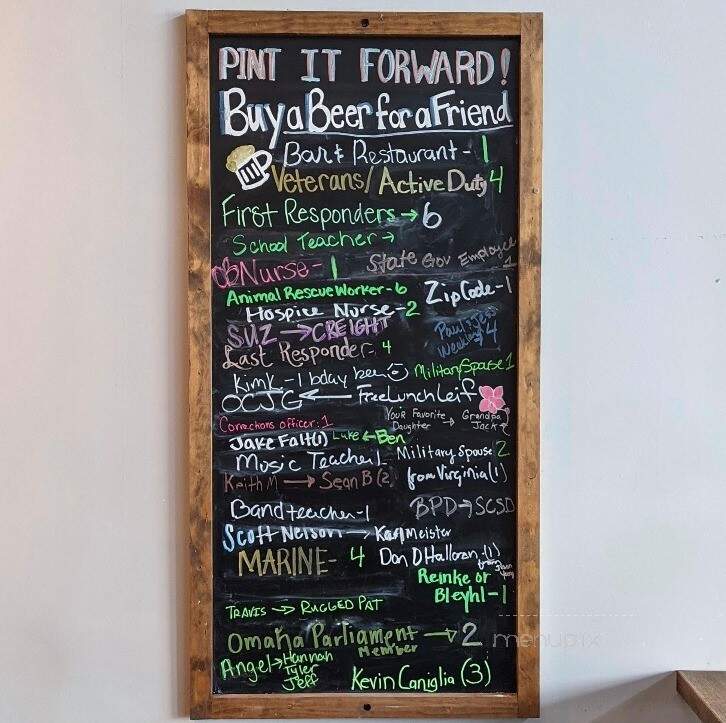 PINT IT FORWARD!
Buy a Beer for a Friend
Bar & Restaurant - 1
Veterans/Active Duty 4
First Responders → 6
School Teacher →
OB Nurse - 1
State Gov Employee 1
Animal Rescue Worker - 6
Zip Code - 1
Hospice Nurse - 2
SUZ → CREIGHT
Last Responder - 4
Kim K. - 1 bday beer
Military Spouse 1
OCJG ← FreeLunchLeif
Corrections officer: 1
Your Favorite Daughter → Grandpa Jack
Jake Falt(1)
Luke ← Ben
Music Teacher 1
Military Spouse 2
from Virginia (1)
Keith M → Sean B (2)
BPD → SCSD
Band teacher - 1
Scott Nelson → Karl Meister
MARINE - 4
Don D Halloran (1)
from
Reinke or
Bleyhl - 1
TRAVIS → RUGGED PAT
Omaha Parliament → 2
Member
Angel → Hannah
Tyler
Jeff
Kevin Caniglia (3)
menupix